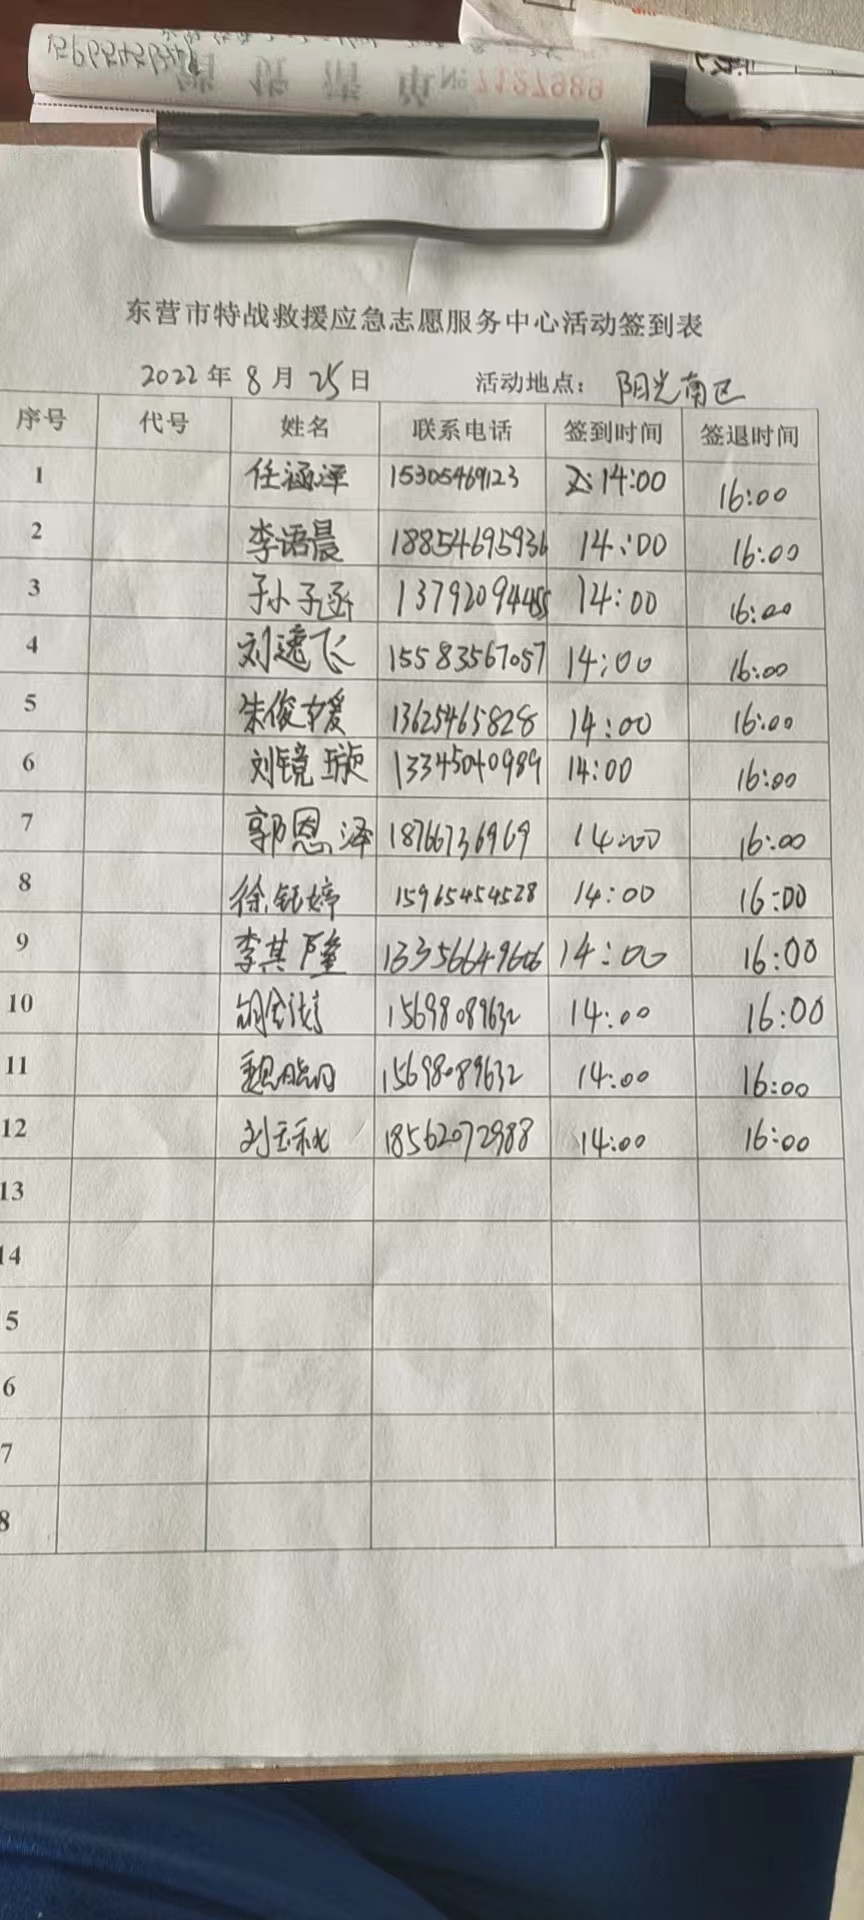 15665456349
No 7127989
东营市特战救援应急志愿服务中心活动签到表
2022年8月25日 活动地点：阳光南区
序号 代号 姓名 联系电话 签到时间 签退时间
1 任涵泽 15305469123 14:00 16:00
2 李语晨 18854695936 14:00 16:00
3 孙子涵 13792094455 14:00 16:00
4 刘逸飞 15583567057 14:00 16:00
5 朱俊媛 13625465828 14:00 16:00
6 刘镜璇 13345040989 14:00 16:00
7 郭恩泽 18766736969 14:00 16:00
8 徐钰婷 15965454528 14:00 16:00
9 李其隆 13356649606 14:00 16:00
10 15698089632 14:00 16:00
11 15698089632 14:00 16:00
12 刘玉秋 18562072988 14:00 16:00
13
14
5
6
7
8